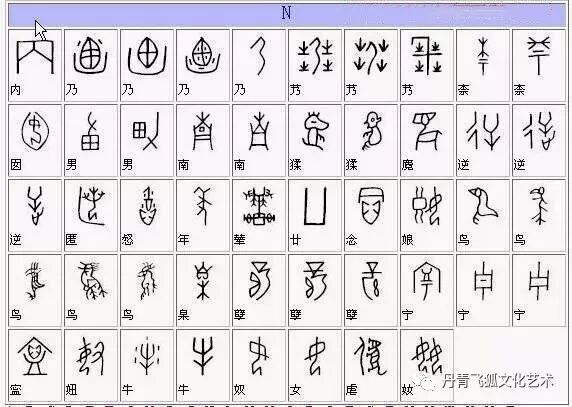 N
内 乃 乃 乃 乃 艿 艿 艿 奈 奈
囡 男 男 南 南 猱 猱 逆 逆
逆 匿 怒 年 辇 廿 念 娘 鸟 鸟
鸟 鸟 鸟 臬 孽 孽 孽 宁 宁 宁
妞 牛 牛 奴 女 虐
丹青飞狐文化艺术